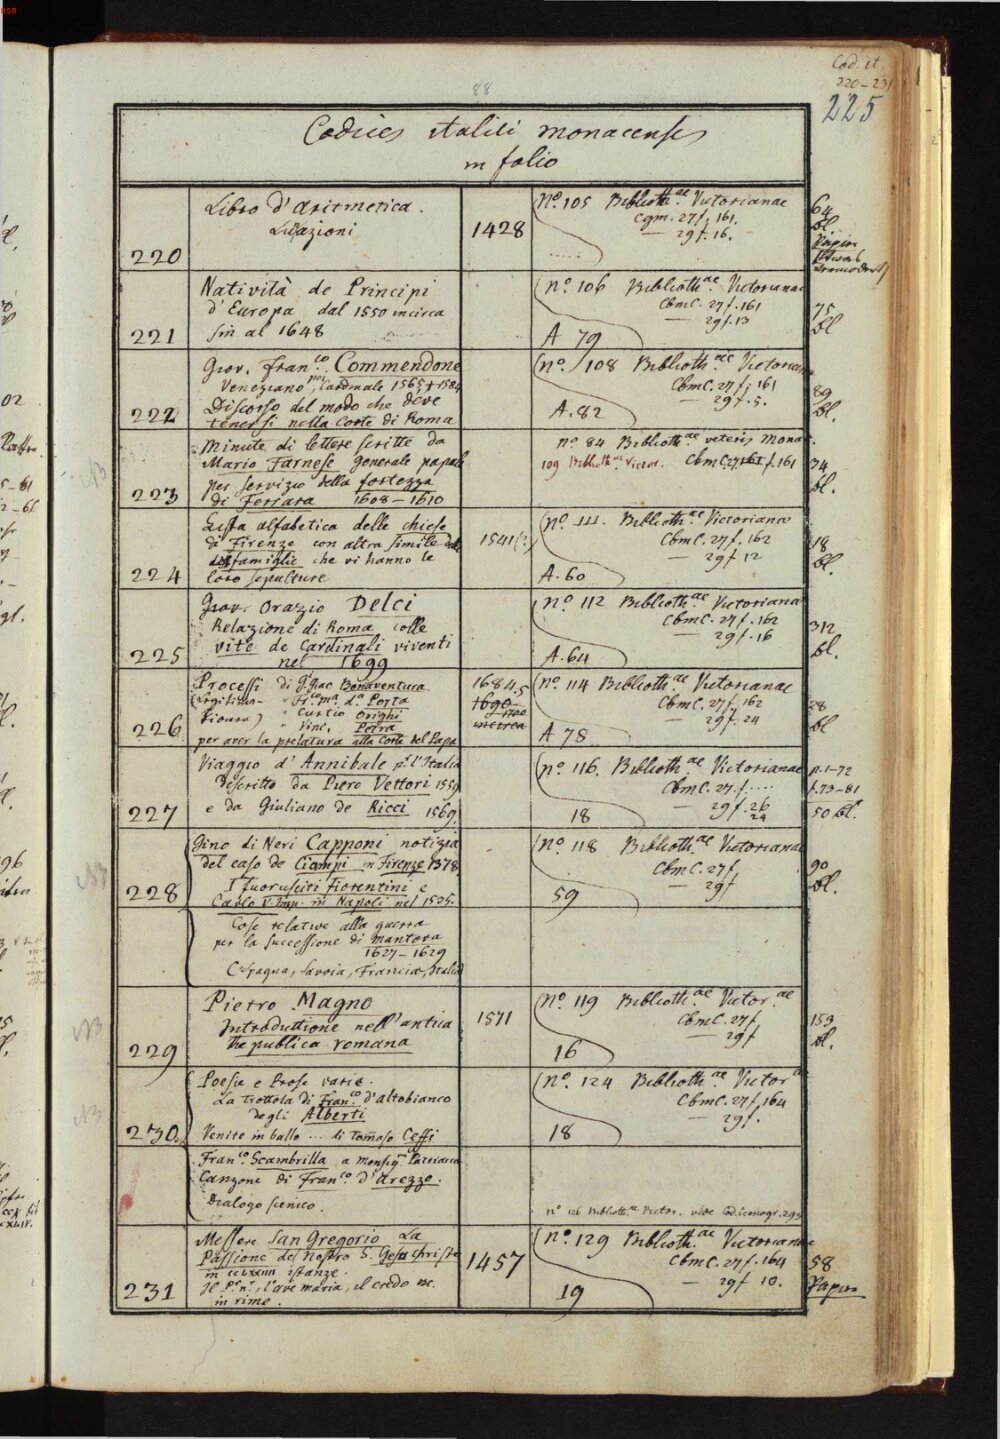 Cod. it.
220–231
88
225
Codices italici monacenses
in folio
220
Libro d'aritmetica.
1428
No. 105 Biblioth.ae Victorianae
Cgm. 27 f. 161.
— 29 f. 16.
64
bl.
221
Natività de Principi
d'Europa dal 1550 incirca
fin al 1648
no. 106 Biblioth.ae Victorianae
CbmC. 27 f. 161
— 29 f. 13
A 79
75
bl
222
Giov. Fran.co Commendone
Veneziano, Cardinale 1565 † 1584
Discorso del modo che deve
tenersi nella Corte di Roma
no. 108 Biblioth.ae Victorian
CbmC. 27 f. 161
— 29 f. 5.
A. 82
89
bl.
223
Minute di lettere scritte da
Mario Farnese generale papale
per servizio della fortezza
di Ferrara 1608 – 1610
no 84 Biblioth.ae veteris Mona
109 Biblioth.ae Victor. CbmC. 27 f. 161
74
bl.
224
Lista alfabetica delle chiese
di Firenze con altra simile delle
famiglie che vi hanno le
loro sepulture
1541 (?)
no. 111. Biblioth.ae Victoriana
CbmC. 27 f. 162
— 29 f 12
A. 60
18
bl.
225
Giov. Orazio Delci
Relazione di Roma colle
vite de Cardinali viventi
nel 1699
no. 112 Biblioth.ae Victoriana
CbmC. 27 f. 162
— 29 f. 16
A. 64
312
bl.
226
Processi di G. Giac Bonaventura.
" Fr.co M.a d.a Porta
" Curtio Orighi
" Vinc. Petra
per aver la prelatura alla Corte del Papa
1684,5
1690–
1700
incirca
no. 114 Biblioth.ae Victorianae
CbmC. 27 f. 162
— 29 f. 24
A 78
28
bl
227
Viaggio d'Annibale p l'Italia
descritto da Piero Vettori 1559
e da Giuliano de Ricci 1569.
no. 116. Biblioth.ae Victorianae
CbmC. 27 f. ....
— 29 f. 26
24
18
p. 1–72
f. 73–81
50 bl.
228
Gino di Neri Capponi notizia
del caso de Ciompi in Firenze 1378
I fuorusciti fiorentini e
Carlo V. Imp. in Napoli nel 1535.
no. 118 Biblioth.ae Victorianae
CbmC. 27 f
— 29 f
59
90
bl.
Cose relative alla guerra
per la successione di Mantova
1627–1629
Spagna, Savoia, Francia, Italia
229
Pietro Magno
Introduttione nell'antica
Republica romana
1571
no. 119 Biblioth.ae Victor.ae
CbmC. 27 f
— 29 f
16
153
bl.
230
Poesie e Prose varie.
La Trottola di Fran.co d'altobianco
degli Alberti
Venite in ballo ... di Tomaso Ceffi
no. 124 Biblioth.ae Victor
CbmC. 27 f 164
— 29 f.
18
Fran.co Scambrilla a monsig.r Patriarca
Canzone di Fran.co d'Arezzo.
Dialogo scenico.
no 126 Biblioth.ae Victor. vide Cod. iconogr. 293
231
Messere San Gregorio La
Passione del nostro S. Gesù Christo
in CCLXXIIII istanze.
Il P.r n.r, l'ave maria, il credo ec.
in rime.
1457
no. 129 Biblioth.ae Victoriana
CbmC. 27 f. 164
— 29 f 10.
19
58
Papier